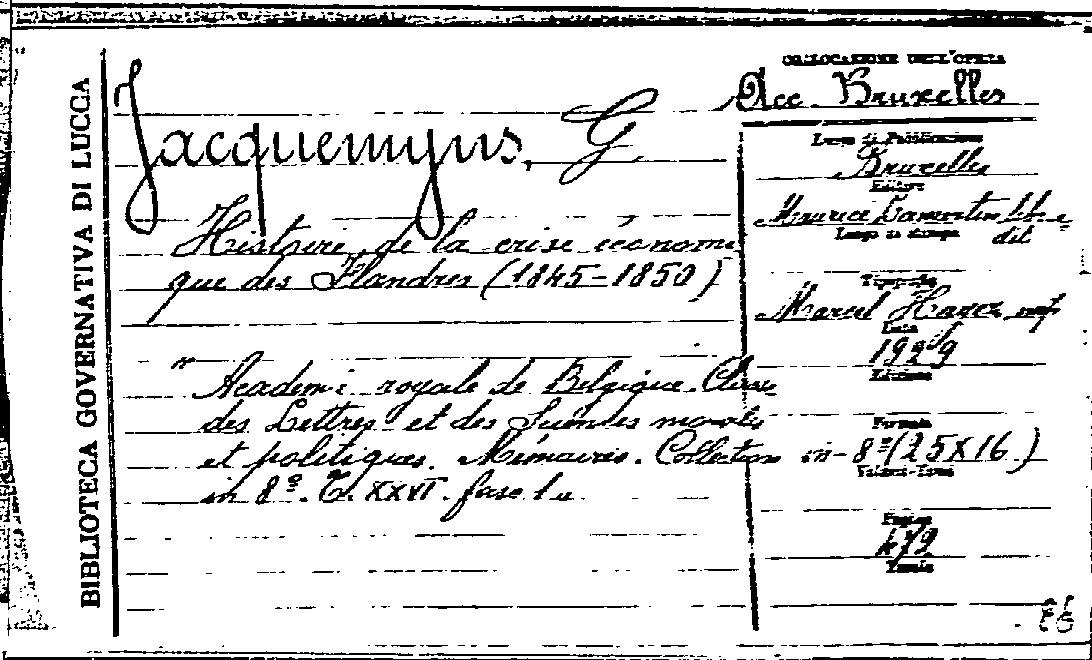 BIBLIOTECA GOVERNATIVA DI LUCCA
Jacquemyns, G.
Histoire de la crise économi
que des Flandres (1845-1850)
" Academi royale de Belgique. Classe
des Lettres et des Sciences morales
et politiques. Mémoires. Collection
in 8º. T. XXVI. fasc 1.
COLLOCAZIONE DELL'OPERA
Acc. Bruxelles
Luogo di Pubblicazione
Bruxelles
Editore
Maurice Lamertin
Luogo di stampa
Tipografia
Marcel Hayez
Data
1929
Edizione
Formato
in-8º (25X16)
Pagine
472
Tavole